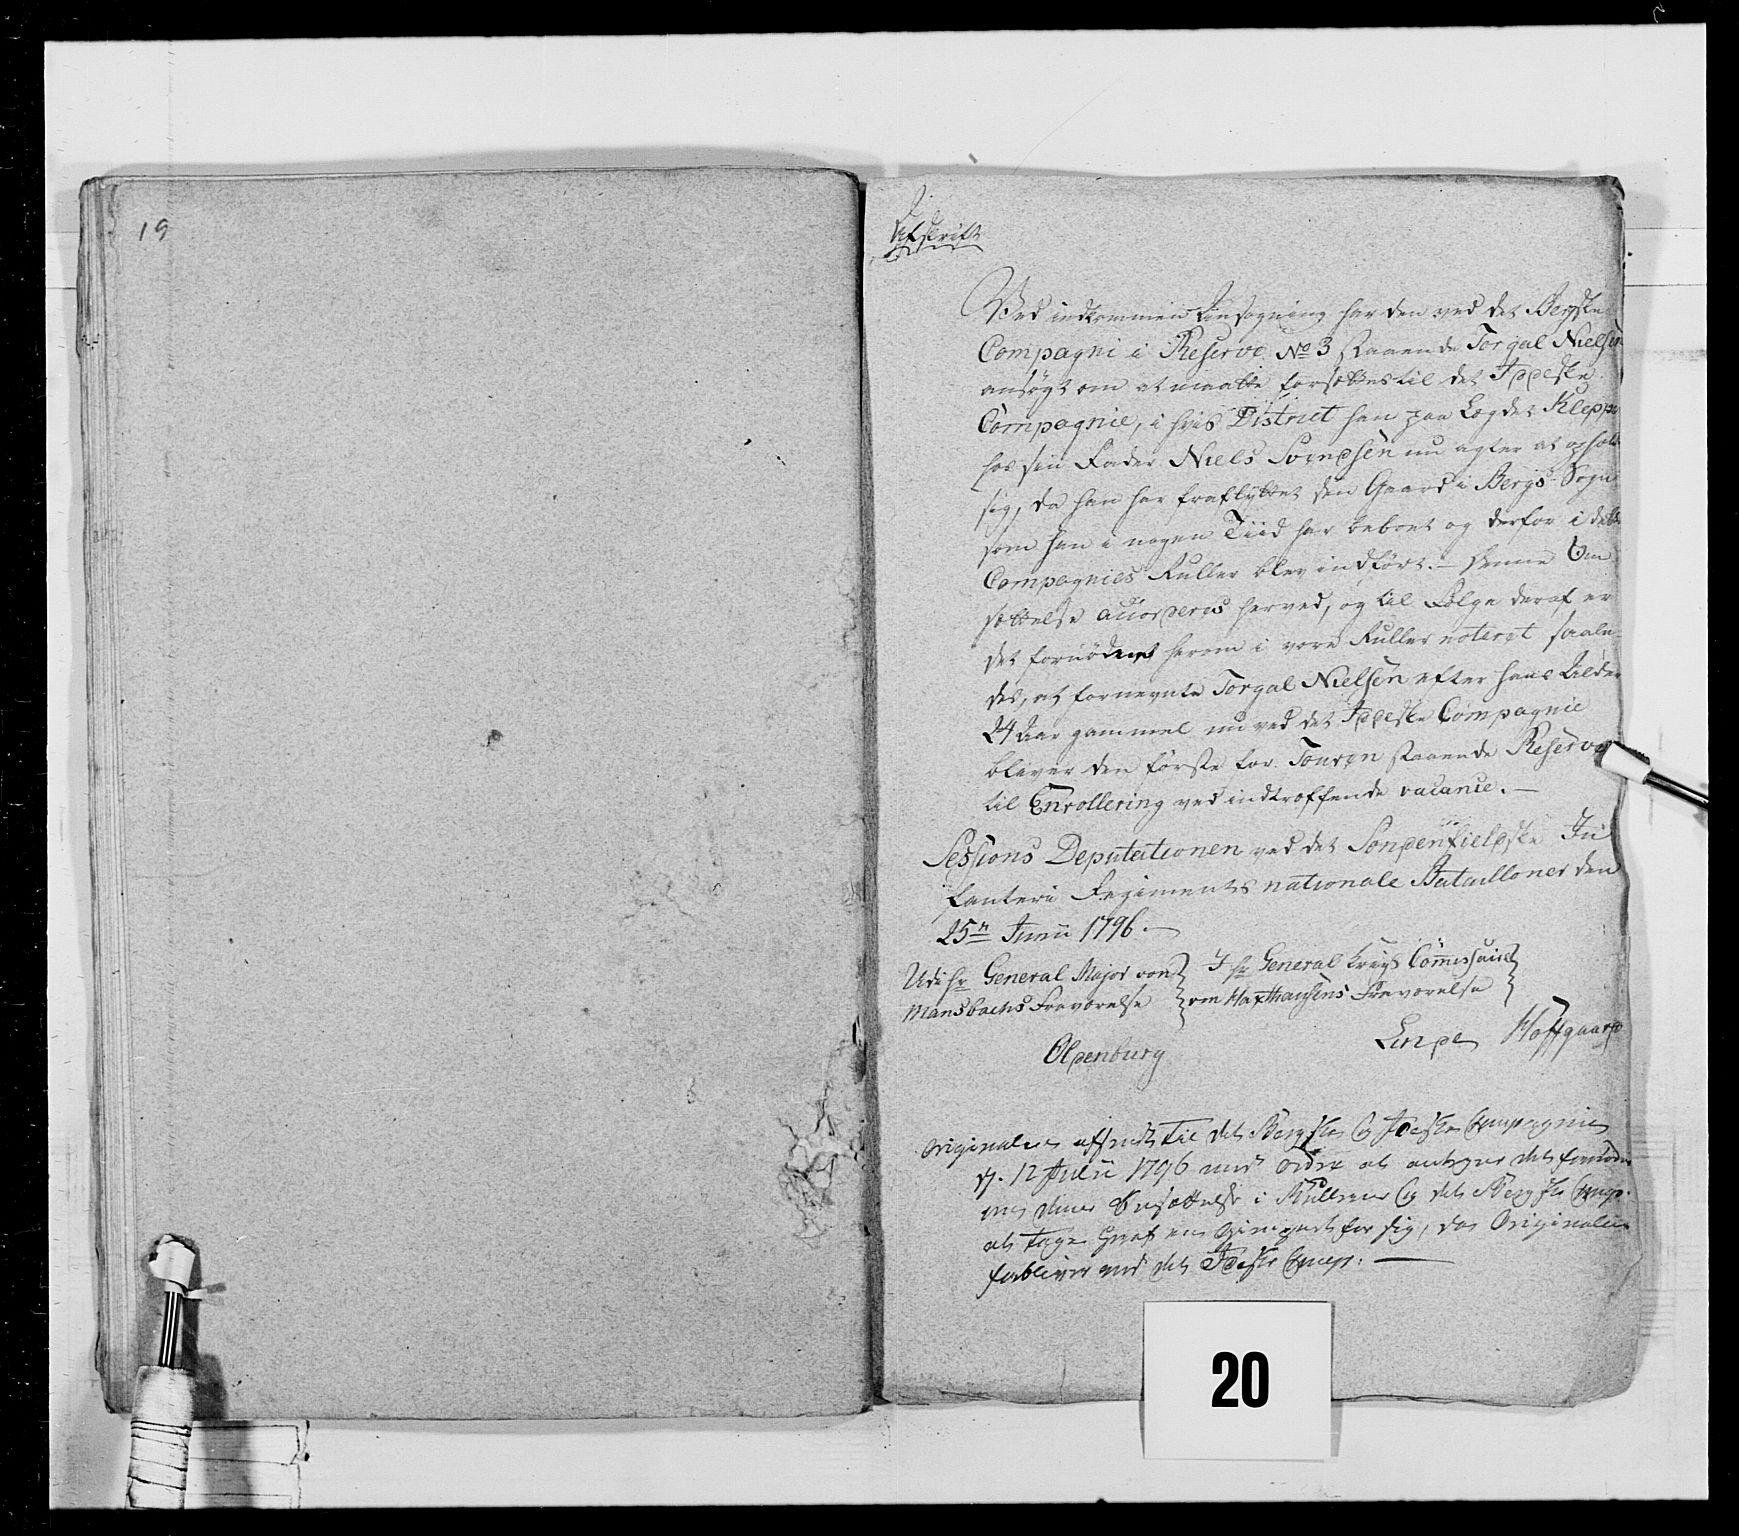 19
Afskrift
Ved indkommen Ansøgning har den ved det Bergske
Compagni i Reserve No 3 staaende Torgal Nielsen
ansøgt om at maatte forsættes til det Iddeske
Compagnie, i hvis District han paa Lægdet Kleppe
hos sin Fader Niels Svendsen nu agter at opholde
sig, da han har fraflyttet den Gaard i Bergs Sogn
som han i nogen Tiid har beboet og derfor i dette
Compagnies Ruller blev indført. – Denne Om
sættelse accorderes herved, og til Følge deraf er
det fornødne herom i vore Ruller noteret saale-
des, at fornevnte Torgal Nielsen efter hans Alder
24 Aar gammel nu ved det Iddeske Compagnie
bliver den første for Touren staaende Reserve
til Enrollering ved indtreffende vacance. –
Sessions Deputationen ved det Søndenfieldske In
fanteri Regiments nationale Batailloner den
25n Junii 1796. –
Udi hr General Major von
Mansbachs Fraværelse
I hr General Krigs Commissaire
von Haxthausens Fraværelse
Oldenburg
Linde Hoffgaard
Originalen afsendt til det Bergske og Iddeske Compagnie
d. 12 Julii 1796 med Ordre at antegne det fornødne
denne Omsættelse i Rullerne og det Bergske Comp.
at tage Heraf en Gienpart for sig, da Originalen
forbliver ved det Iddeske Comp. –
20